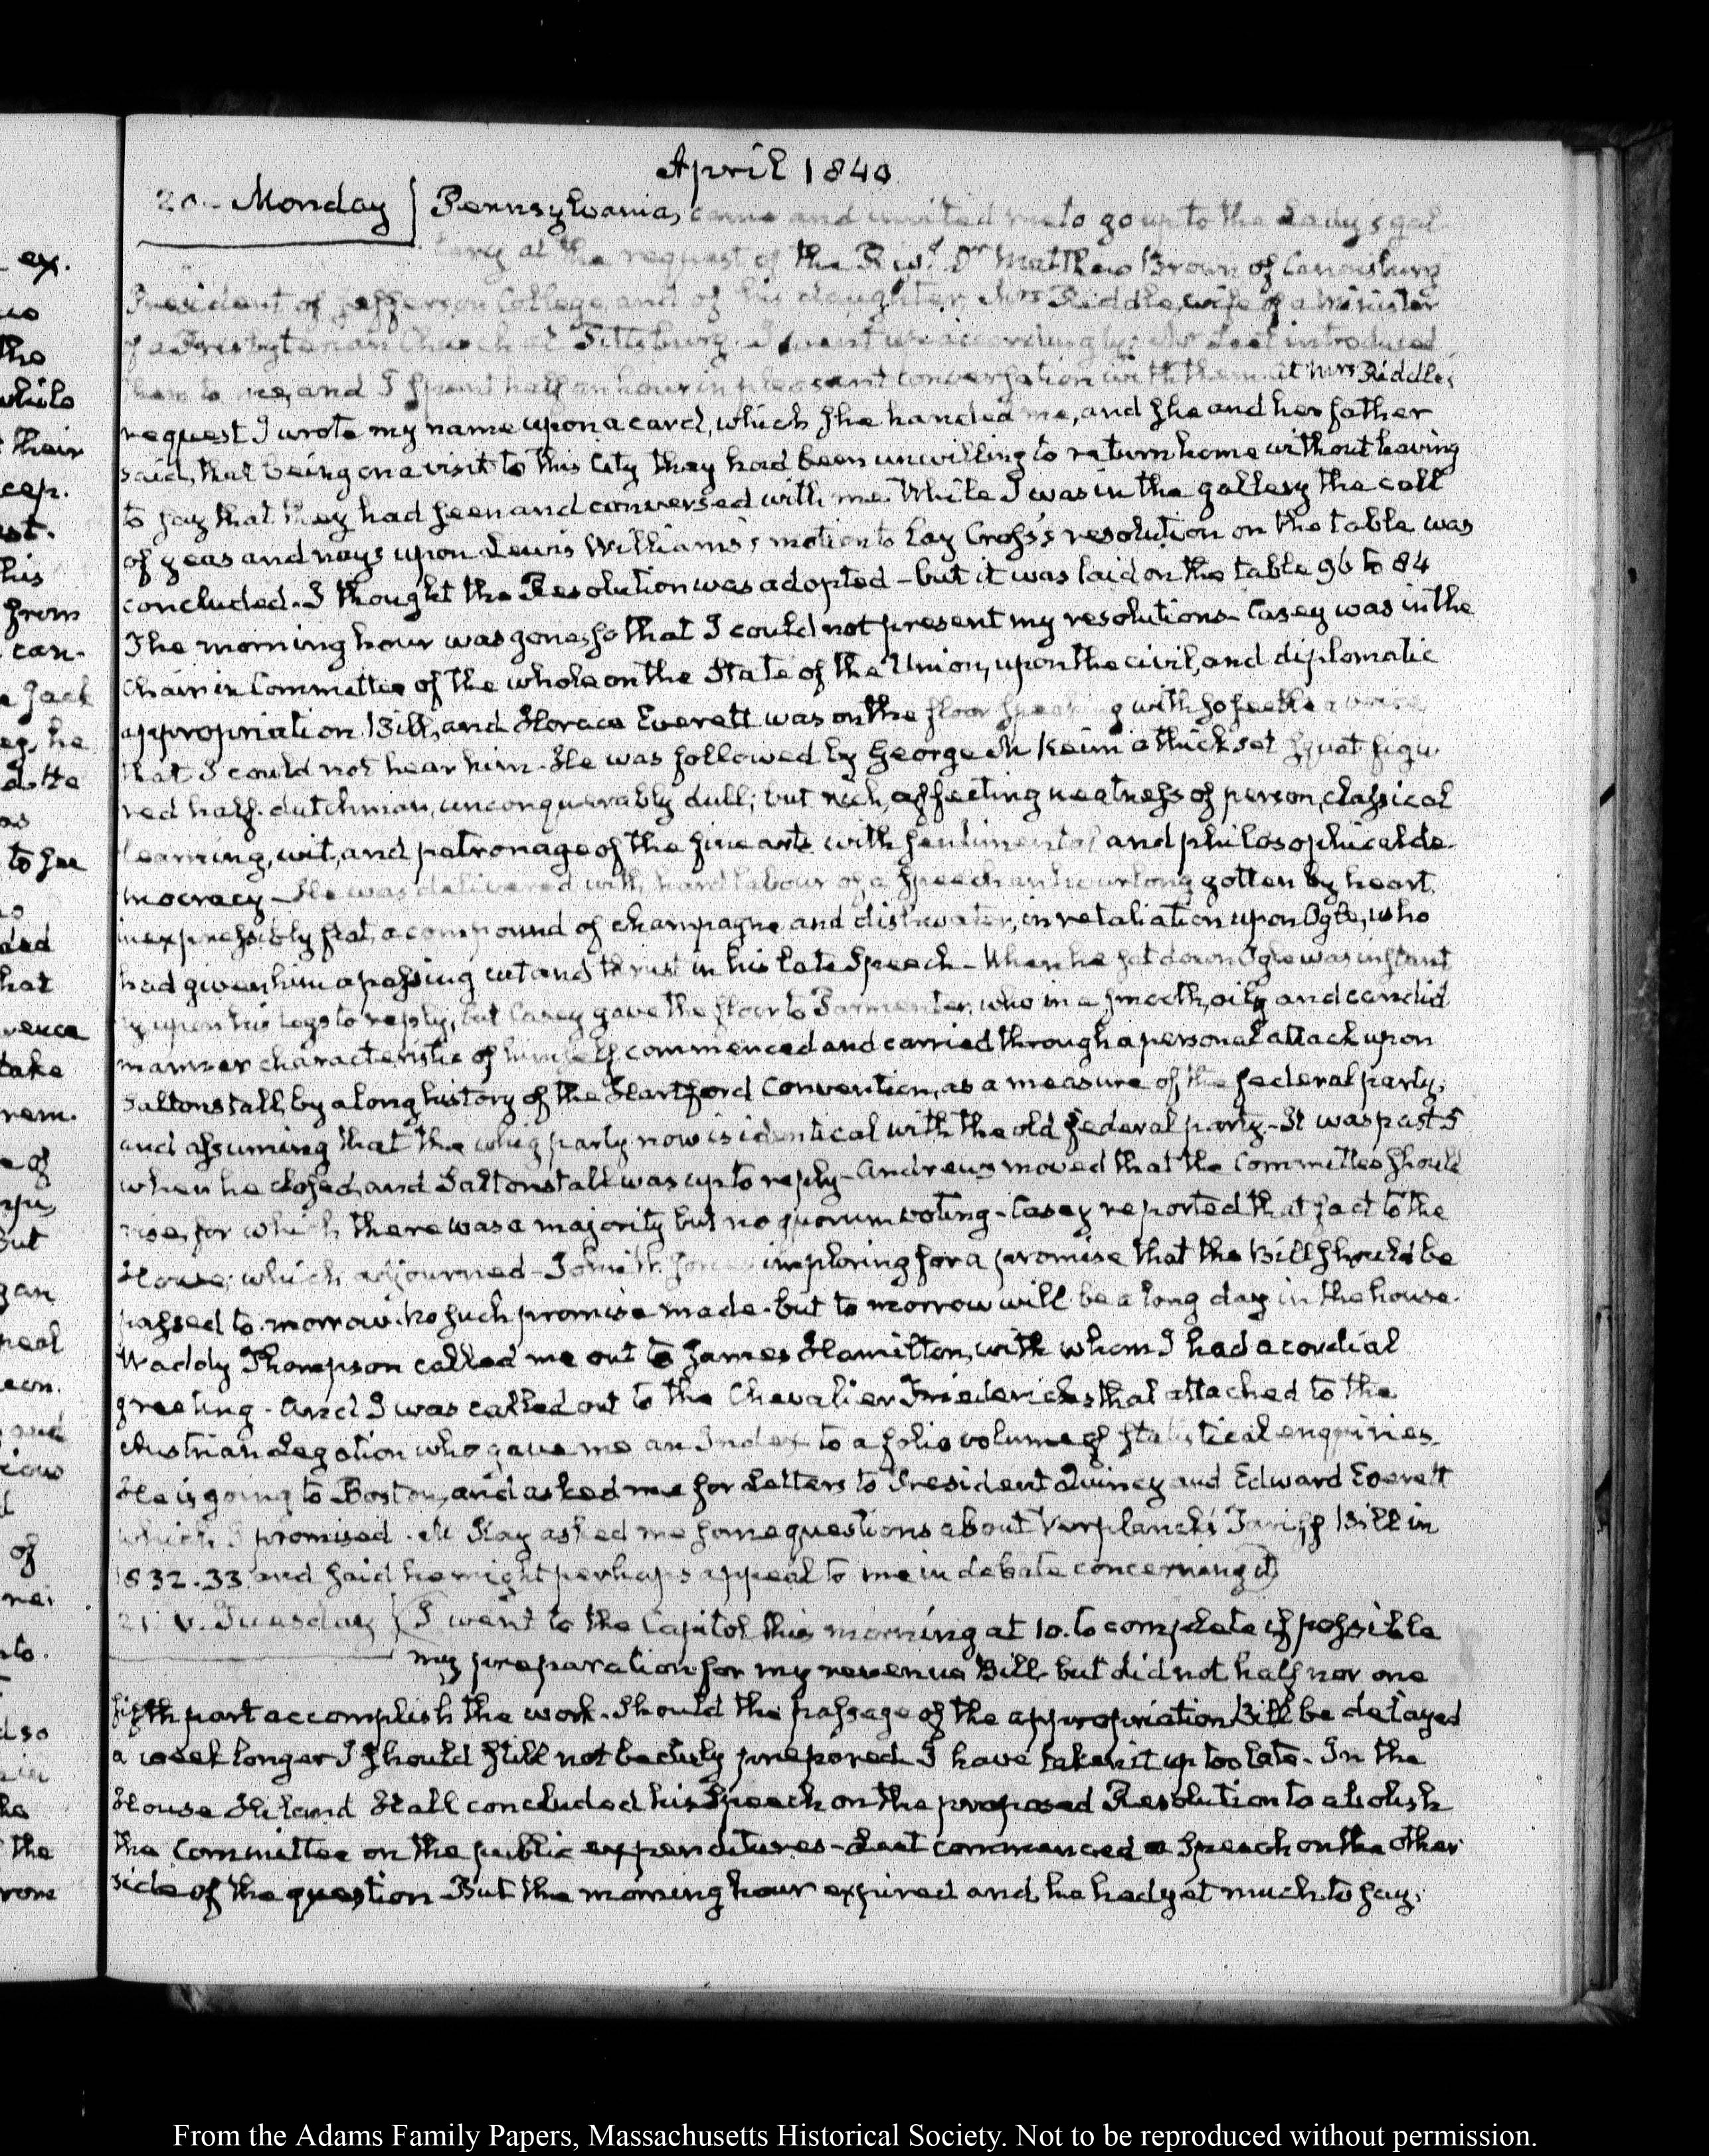 April 1840
20. Monday Pennsylvania, came and invited me to go up to the Lady's gal-
lery at the request of the Revd. Dr Matthew Brown of Canonsburg
President of Jefferson College, and of his daughter Mrs Riddle, wife of a Minister
of a Presbyterian Church at Pittsburg. I went up accordingly; Mr Leet introduced
them to me, and I spent half an hour in pleasant conversation with them. at Mrs Riddle's
request I wrote my name upon a card, which she handed me, and she and her father
said, that being on a visit to this City they had been unwilling to return home without having
to say that they had seen and conversed with me. While I was in the gallery the call
of yeas and nays upon Lewis Williams's motion to lay Cross's resolution on the table was
concluded. I thought the Resolution was adopted – but it was laid on the table 96 to 84
The morning hour was gone, so that I could not present my resolutions – Casey was in the
Chair in Committee of the whole on the State of the Union, upon the civil, and diplomatic
appropriation Bill, and Horace Everett was on the floor speaking with so feeble a voice
that I could not hear him. He was followed by George M Keim a thick set squat figu-
red half-dutchman, unconquerably dull; but rich, affecting neatness of person, classical
learning, wit, and patronage of the fine arts with sentimental and philosophical de-
mocracy – He was delivered with hard labour of a Speech an hour long gotten by heart,
inexpressibly flat, a compound of champagne and dishwater, in retaliation upon Ogle, who
had given him a passing cut and thrust in his late Speech – When he sat down Ogle was instant
ly upon his legs to reply, but Casey gave the floor to Parmenter, who in a smooth, oily and candid
manner characteristic of himself commenced and carried through a personal attack upon
Saltonstall, by a long history of the Hartford Convention, as a measure of the federal party;
and assuming that the whig party now is identical with the old federal party – It was past 5
when he closed, and Saltonstall was up to reply – Andrews moved that the Committee should
rise, for which there was a majority but no quorum voting – Casey reported that fact to the
House; which adjourned – John W. Jones imploring for a promise that the Bill should be
passed to-morrow. No such promise made. but to morrow will be a long day in the house.
Waddy Thompson called me out to James Hamilton, with whom I had a cordial
greeting. And I was called out to the Chevalier Friederichsthal attached to the
Austrian Legation who gave me an Index to a folio volume of statistical enquiries.
He is going to Boston, and asked me for Letters to President Quincy and Edward Everett
which I promised. Mc Kay asked me some questions about Verplanck's Tariff Bill in
1832.33. and said he might perhaps appeal to me in debate concerning it
21. V. Tuesday I went to the Capitol this morning at 10. to complete if possible
my preparation for my revenue Bill but did not half nor one
fifth part accomplish the work. Should the passage of the appropriation Bill be delayed
a week longer I should still not be duly prepared. I have taken it up too late. In the
House Hiland Hall concluded his Speech on the proposed Resolution to abolish
the Committee on the public expenditures – Leet commenced a Speech on the other
side of the question But the morning hour expired and he had yet much to say.
From the Adams Family Papers, Massachusetts Historical Society. Not to be reproduced without permission.